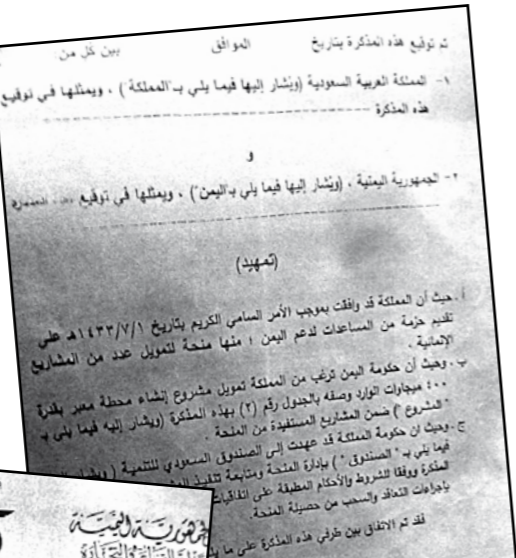 تم توقيع هذه المذكرة بتاريخ الموافق بين كل من
١- المملكة العربية السعودية (ويُشار إليها فيما يلي بـ"المملكة") ، ويمثلها في توقيع
هذه المذكرة
و
٢- الجمهورية اليمنية ، (ويُشار إليها فيما يلي بـ"اليمن") ، ويمثلها في توقيع
(تمهيد)
أ. حيث أن المملكة قد وافقت بموجب الأمر السامي الكريم بتاريخ ١٤٣٣/٧/١هـ على
تقديم حزمة من المساعدات لدعم اليمن ؛ منها منحة لتمويل عدد من المشاريع
الإنمائية .
ب. وحيث أن حكومة اليمن ترغب من المملكة تمويل مشروع إنشاء محطة معبر بقدرة
٤٠٠ ميجاوات الوارد وصفه بالجدول رقم (٢) بهذه المذكرة (ويشار إليه فيما يلي بـ
"المشروع") ضمن المشاريع المستفيدة من المنحة .
ج. وحيث ان حكومة المملكة قد عهدت إلى الصندوق السعودي للتنمية (ويشار
فيما يلي بـ "الصندوق") بإدارة المنحة ومتابعة تنفيذ
المذكرة ووفقا للشروط والأحكام المطبقة على اتفاقيات
بإجراءات التعاقد والسحب من حصيلة المنحة.
فقد تم الاتفاق بين طرفي هذه المذكرة على ما
الجمهورية اليمنية